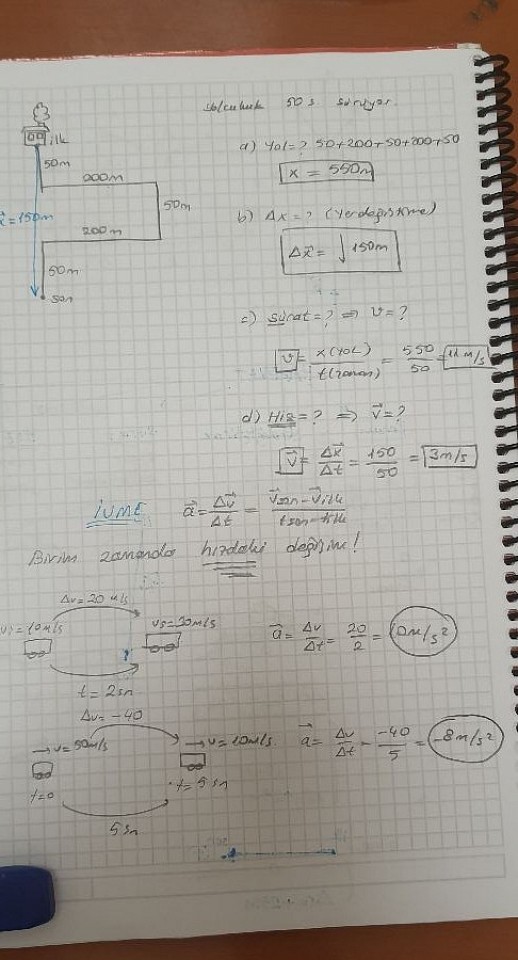 Yolculuk 50 s sürüyor.
ilk
50m
200m
50m
x⃗=150m
200m
50m
son
a) Yol=? 50+200+50+200+50
x = 550m
b) Δx=? (Yerdeğiştirme)
Δx⃗= ↓150m
c) Sürat=? ⇒ v=?
v = x(YOL)/t(zaman) = 550/50 = 11 m/s
d) Hız=? ⇒ v⃗=?
v⃗ = Δx⃗/Δt = 150/50 = 3m/s
İVME a⃗=Δv⃗/Δt = v⃗son-v⃗ilk/tson-tilk
Birim zamanda hızdaki değişim!
Δv=20 m/s
=10m/s
vs=30m/s
t=2sn
a⃗=Δv/Δt=20/2=10m/s²
Δv=-40
→v=50m/s
→v=10m/s
t=0
t=5sn
5sn
a⃗=Δv/Δt=-40/5=-8m/s²